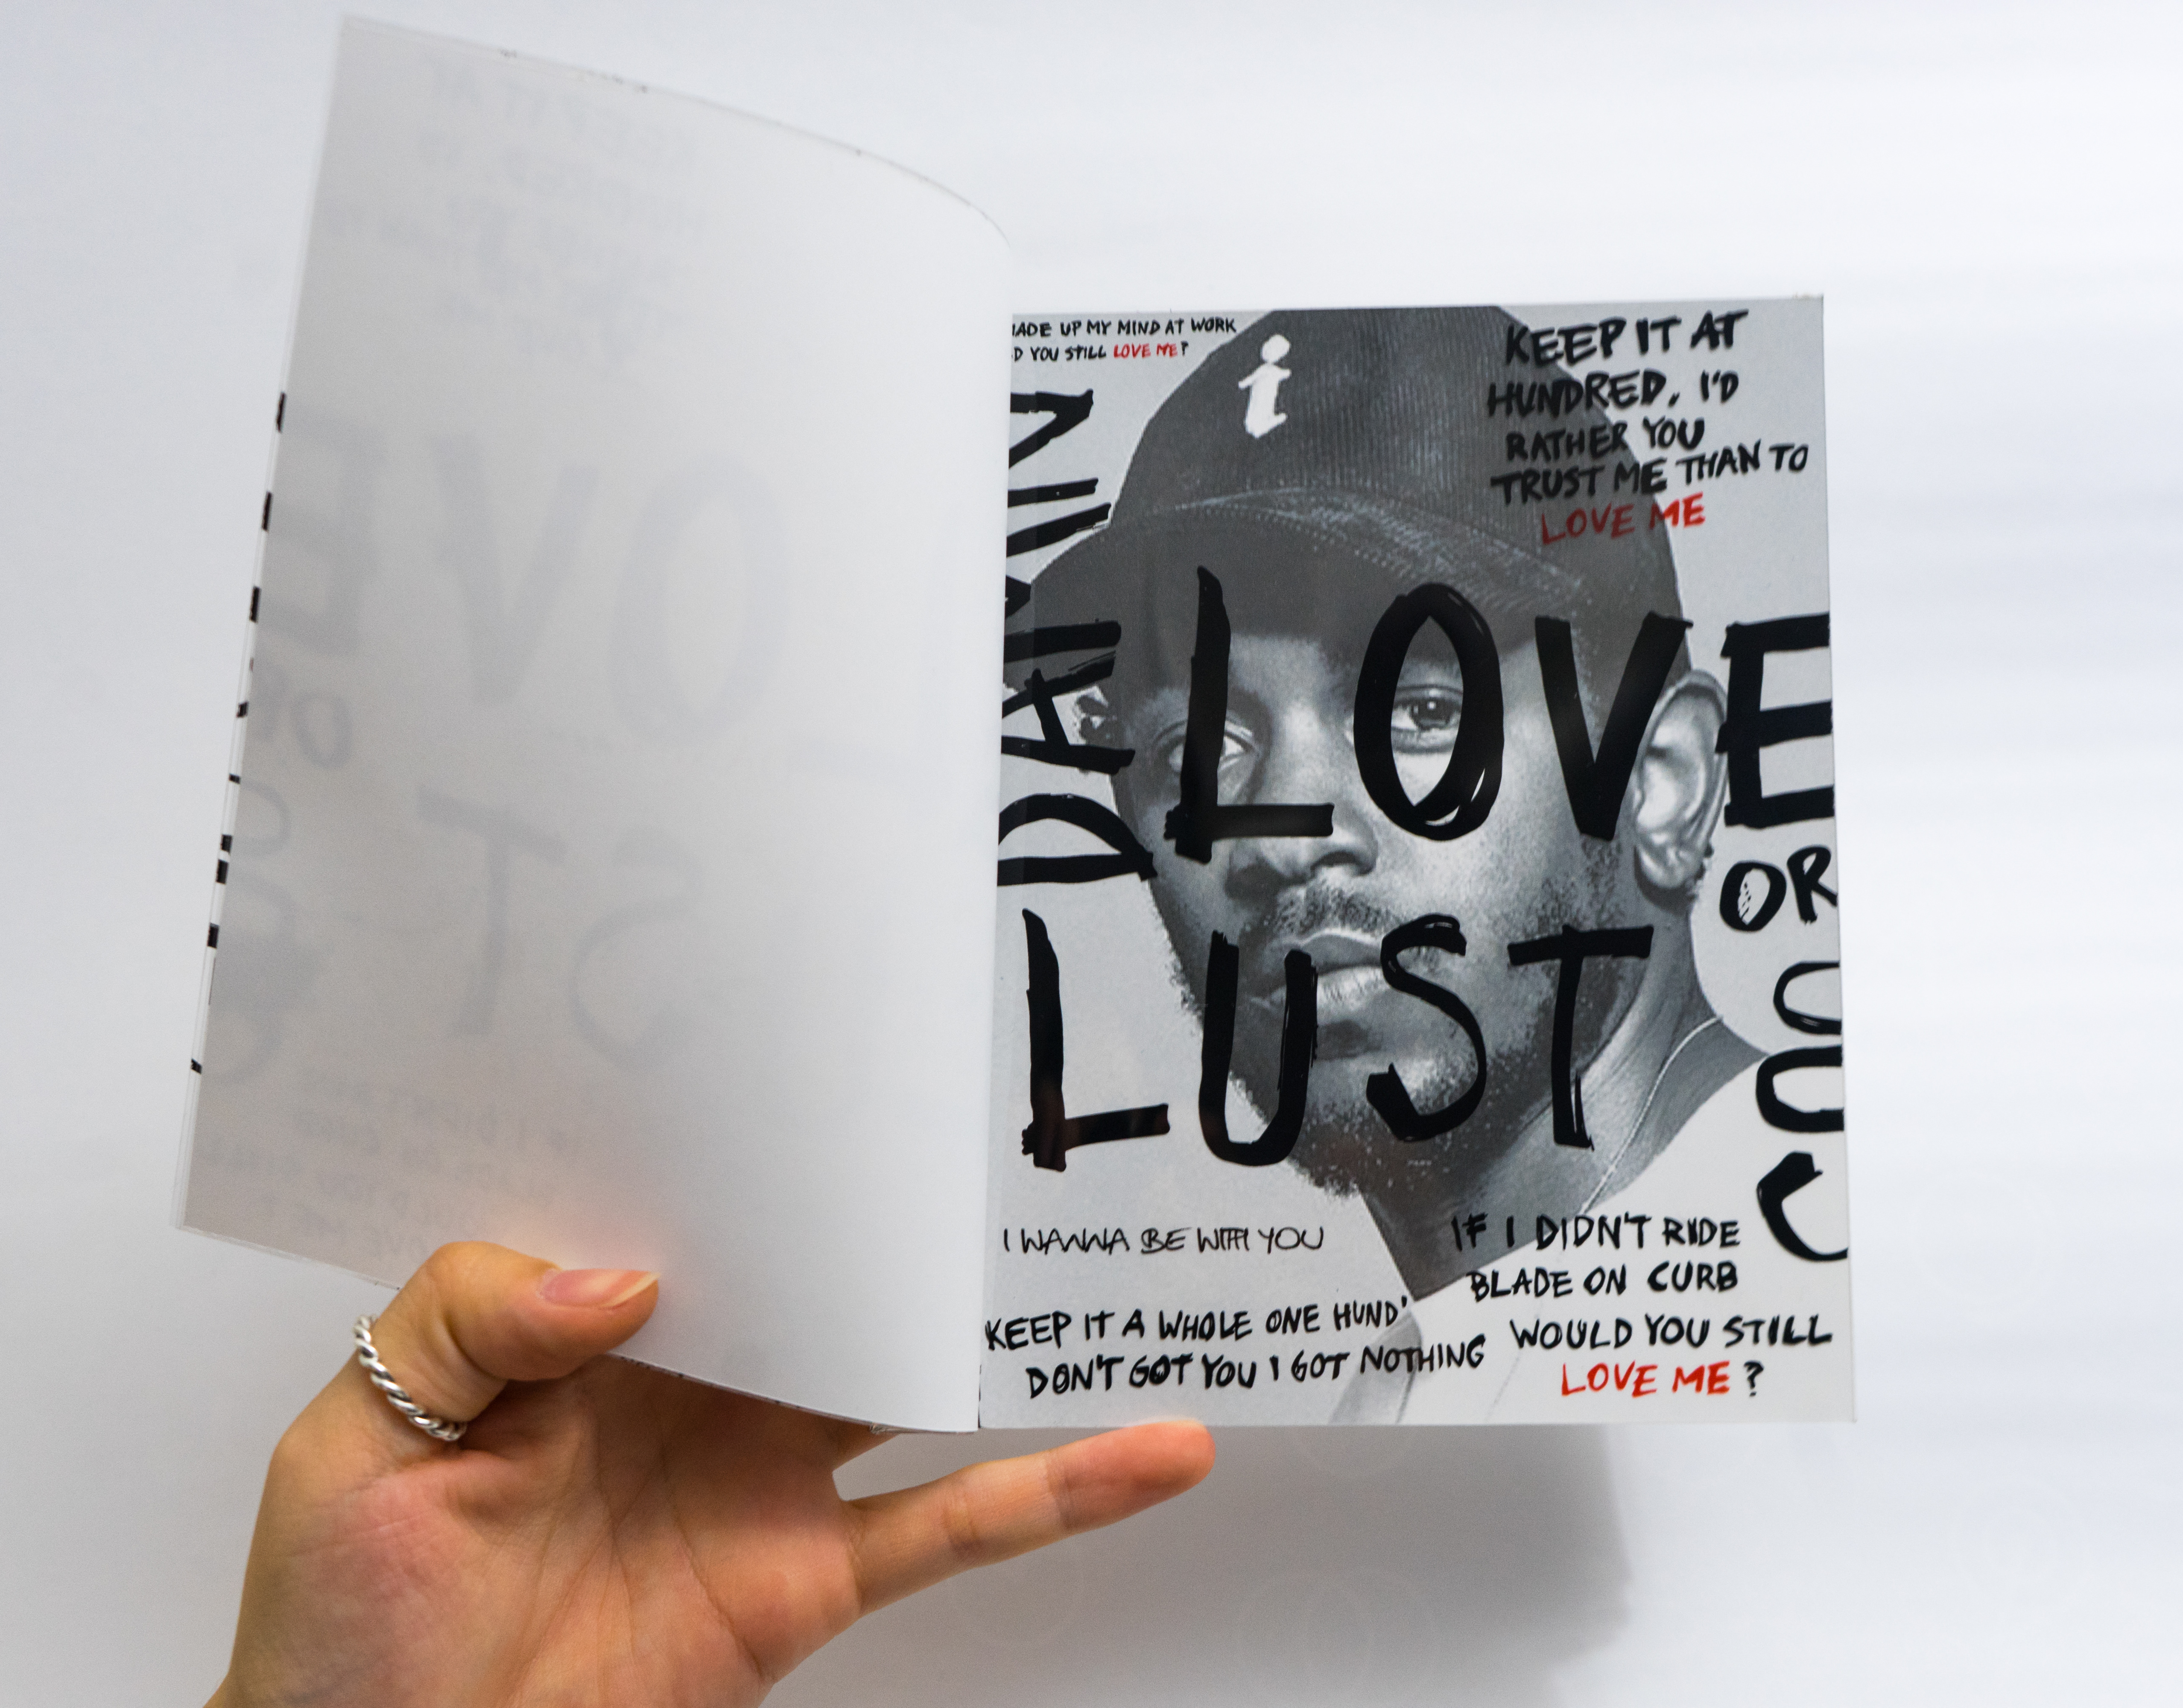 ADE UP MY MIND AT WORK
D YOU STILL LOVE ME?
i
KEEP IT AT
HUNDRED, I'D
RATHER YOU
TRUST ME THAN TO
LOVE ME
DAMN
LOVE
OR
LUST
I WANNA BE WITH YOU
KEEP IT A WHOLE ONE HUND'
DON'T GOT YOU I GOT NOTHING
IF I DIDN'T RIDE
BLADE ON CURB
WOULD YOU STILL
LOVE ME?